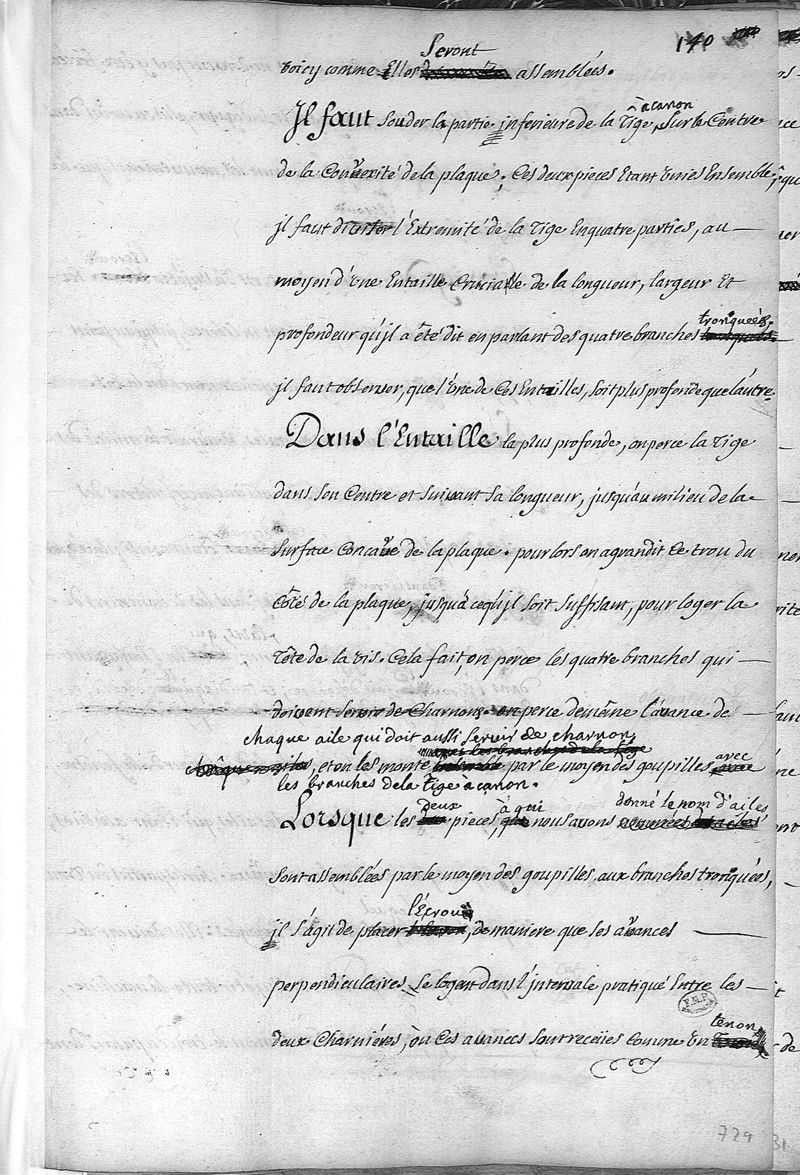 140
Seront
voicy comme Elles assemblées.
à canon
Il faut Souder la partie inferieure de la Tige, Sur le Centre
de la Convexité de la plaque; Ces deux pieces Etant Unies Ensemble,
il faut l'Extremité de la Tige En quatre parties, au
moyen d'une Entaille Cruciale de la longueur, largeur Et
profondeur qu'jl a êté dit en parlant des quatre branches tronquées,
jl faut observer, que l'une de Ces Entailles, soit plus profonde que l'autre.
Dans l'Entaille la plus profonde, on perce la Tige
dans son Centre et suivant sa longueur, jusqu'au milieu de la
Surface Concave de la plaque. pour lors on agrandit Ce trou du
Côté de la plaque, jusqu'à ce qu'jl soit Suffisant, pour loger la
Tête de la vis. Cela fait, on perce les quatre branches qui
doivent Servir de Charnons. on perce de même l'avance de
chaque aile qui doit aussi servir de charnon
et on les monte par le moyen des goupilles avec
les branches de la Tige à canon.
Lorsque les deux pieces, à qui nous avons donné le nom d'ailes
Sont assemblées par le moyen des goupilles, aux branches tronquées,
jl s'agit de placer l'Ecrou, de maniere que ses avances
perpendiculaires, Se logent dans l'jntervale pratiqué Entre les
deux Charniéres, où Ces avances sont receües Comme Un tenon
729